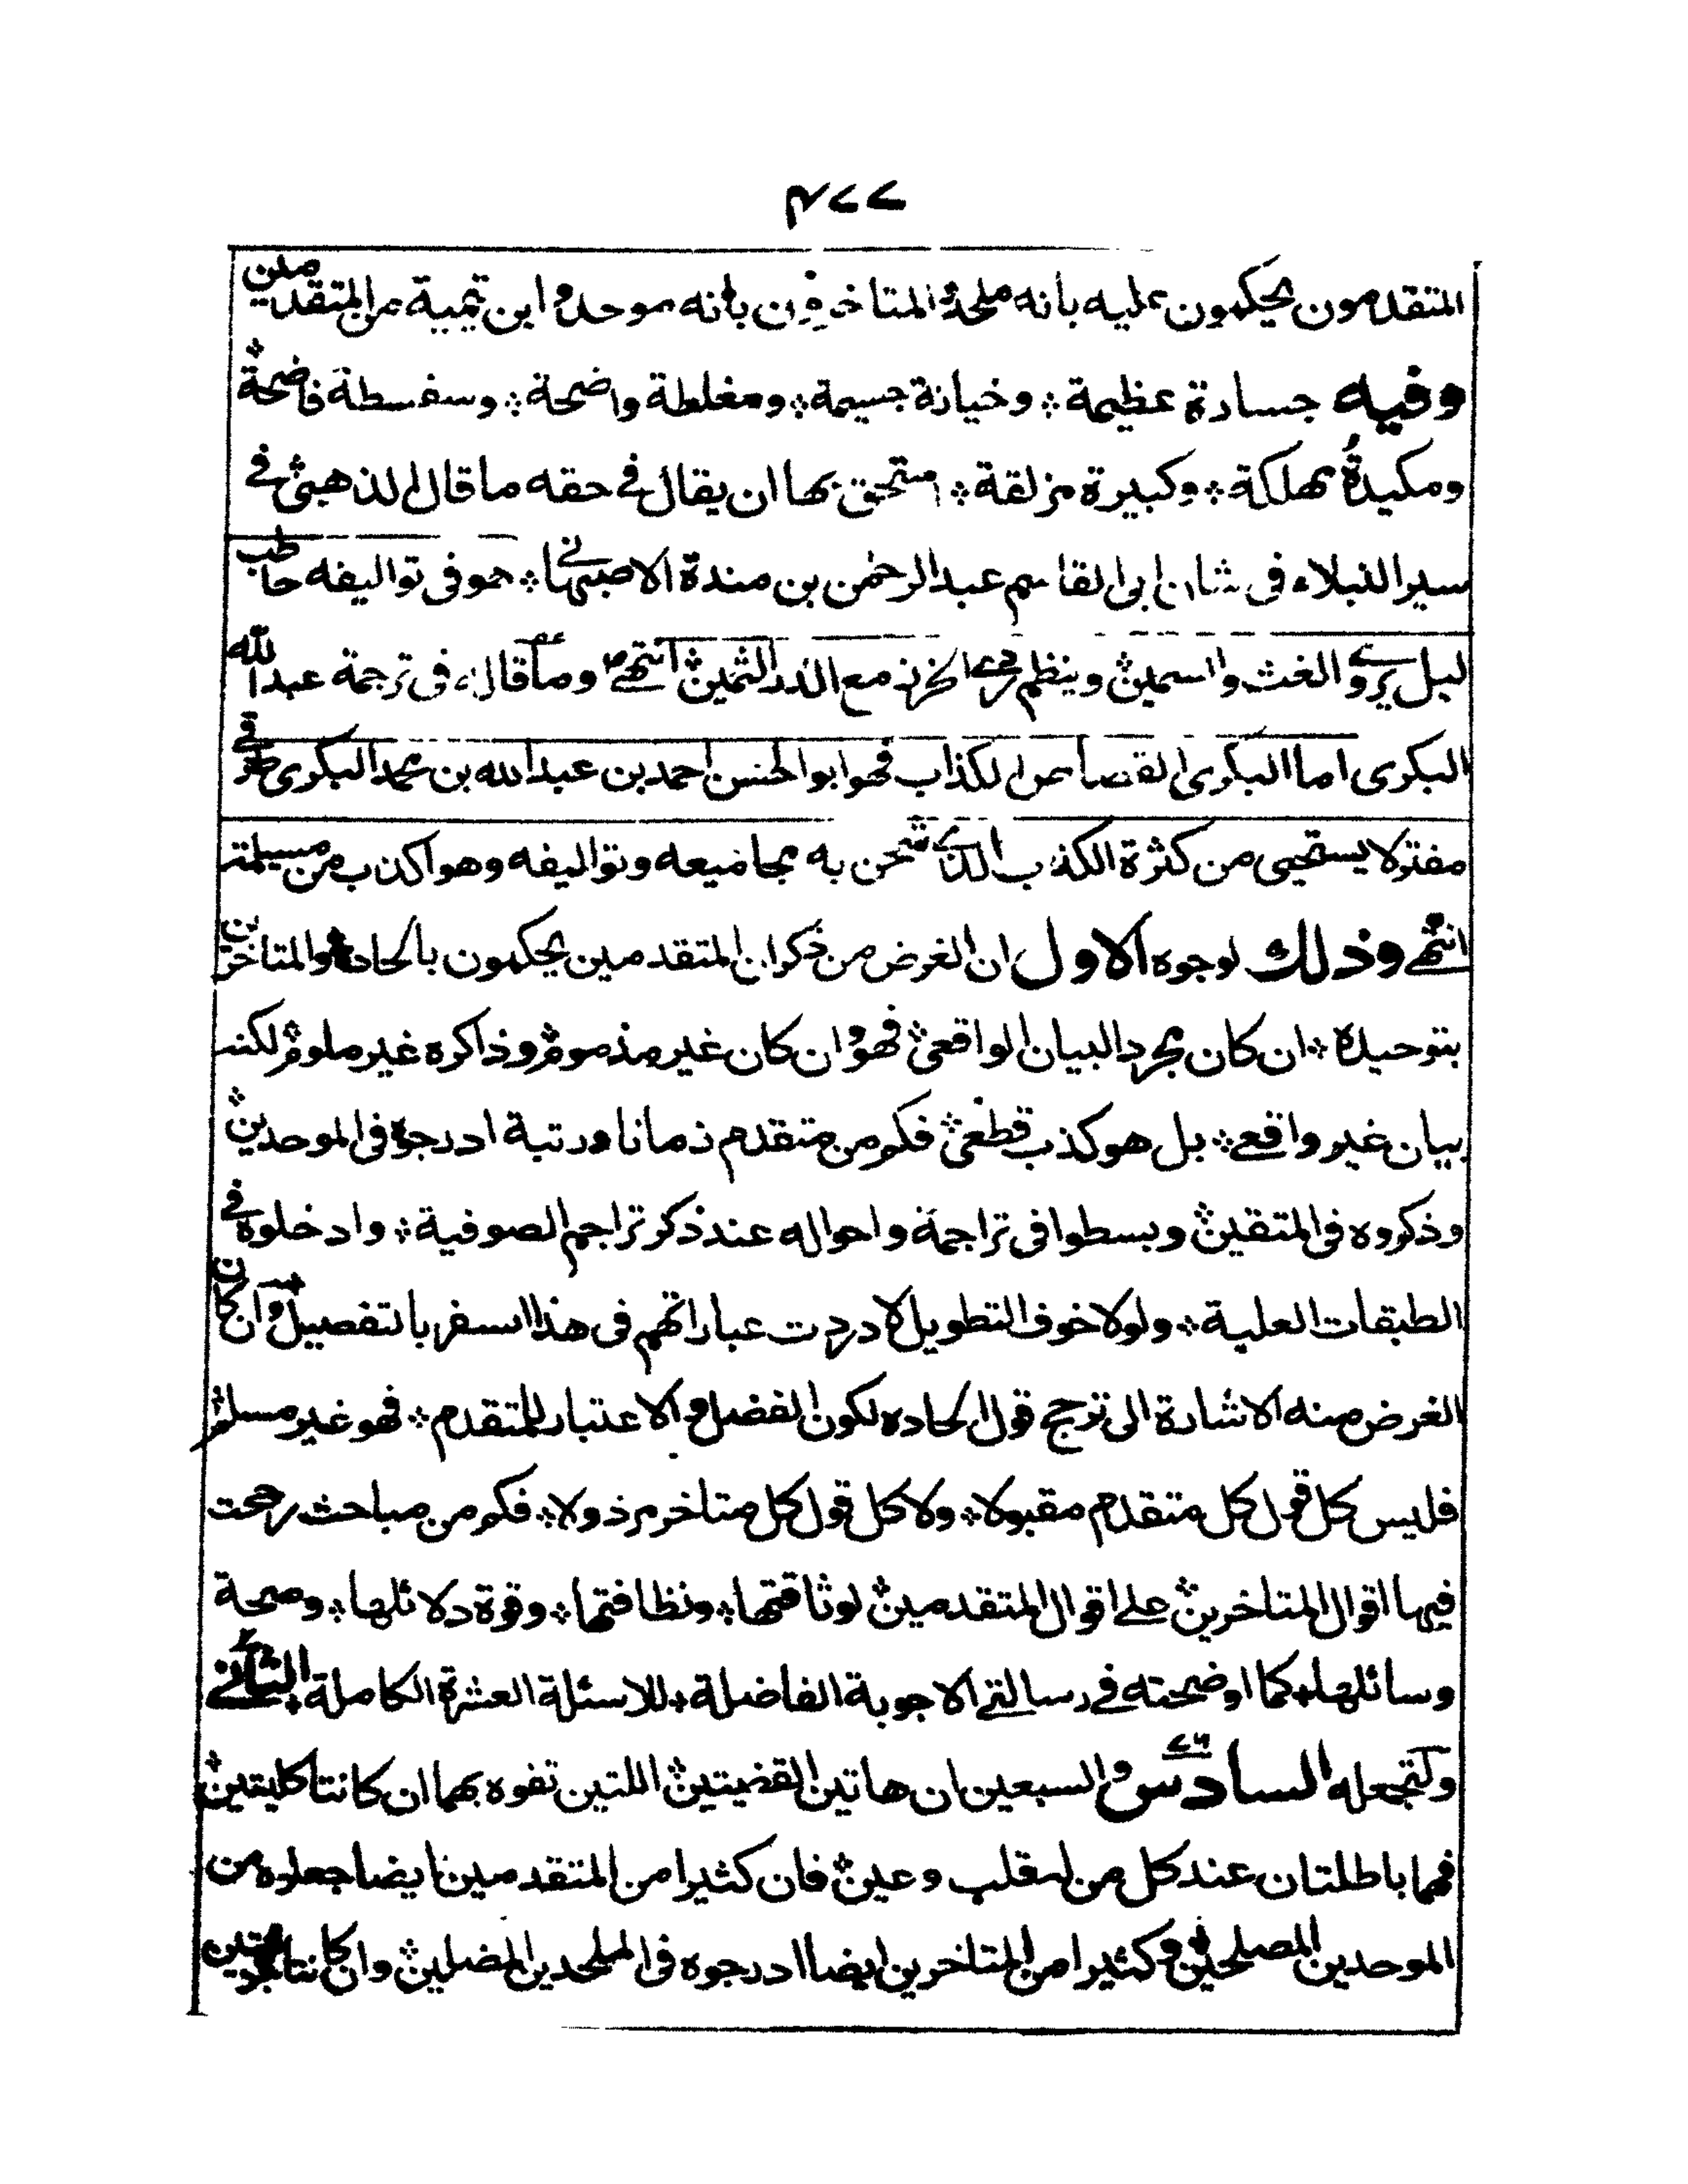 ٤٧٧
المتقدمون يحكمون عليه بانه ملحد والمتاخرون بانه موحد وابن تيمية من المتقدمين
وفيه جسارة عظيمة ؞ وخيانة جسيمة ؞ ومغلطة واضحة ؞ وسفسطة فاضحة ؞
ومكيدة مهلكة ؞ وكبيرة مزلقة ؞ استحق بها ان يقال في حقه ما قال الذهبي في
سير النبلاء في شان ابي القاسم عبد الرحمن بن مندة الاصبهاني ؞ هو في تواليفه حاطب
ليل يروي الغث والسمين ؞ وينظم ردي الخرز مع الدر الثمين ؞ انتهى وما قال في ترجمة عبد الله
البكري اما البكري القصاص الكذاب فهو ابو الحسن احمد بن عبد الله بن محمد البكري طرقي
مفتر لا يستحيي من كثرة الكذب الذي شحن به مجاميعه وتواليفه وهو اكذب من مسيلمة
انتهى وذلك لوجوه الاول ان الغرض من ذكر ان المتقدمين يحكمون بالحاده والمتاخرين
بتوحيده ؞ ان كان مجرد البيان الواقعي ؞ فهو وان كان غير مذموم ؞ وذاكره غير ملوم ؞ لكنه
بيان غير واقعي ؞ بل هو كذب قطعي ؞ فكم من متقدم زمانا ورتبة ادرجوه في الموحدين ؞
وذكروه في المتقين ؞ وبسطوا في تراجمة واحواله عند ذكر تراجم الصوفية ؞ وادخلوه في
الطبقات العلية ؞ ولولا خوف التطويل لاوردت عباراتهم في هذا السفر بالتفصيل وان كان
الغرض منه الاشارة الى ترجح قول الحاده لكون الفضل والاعتبار للمتقدم ؞ فهو غير مسلم ؞
فليس كل قول كل متقدم مقبولا ؞ ولا كل قول كل متاخر مرذولا ؞ فكم من مباحث رجحت
فيها اقوال المتاخرين ؞ على اقوال المتقدمين ؞ لوثاقتها ؞ ونظافتها ؞ وقوة دلائلها ؞ وصحة
وسائلها ؞ كما اوضحته في رسالتي الاجوبة الفاضلة ؞ للاسئلة العشرة الكاملة ؞ الثاني
ولتجعله السادس والسبعين ٧٦ ان هاتين القضيتين ؞ اللتين تفوه بهما ان كانتا كليتين ؞
فهما باطلتان عند كل من له قلب وعين ؞ فان كثيرا من المتقدمين ايضا جعلوه من
الموحدين المصلحين ؞ وكثيرا من المتاخرين ايضا ادرجوه في الملحدين المضلين ؞ وان كانتا جزئيتين